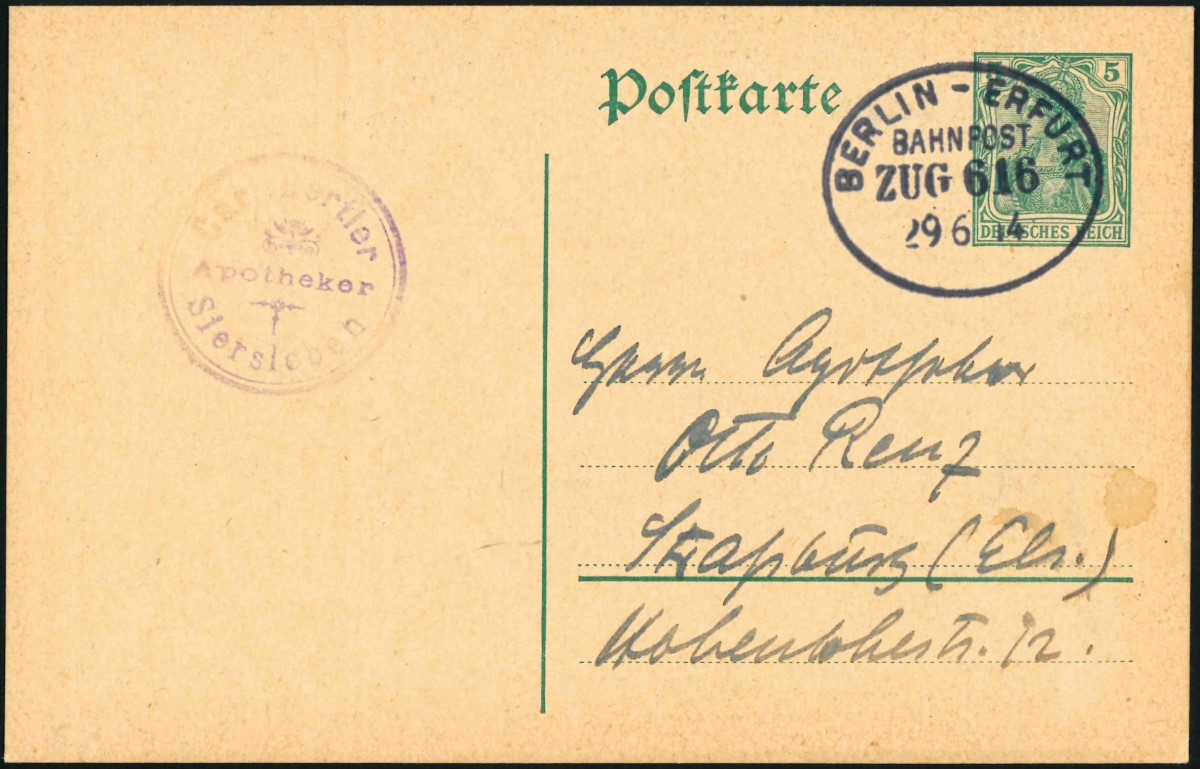 Postkarte
5 5
DEUTSCHES REICH
BERLIN - ERFURT
BAHNPOST
ZUG 616
29 6 14
Apotheker
Siersleben
Herrn Apotheker
Otto Renz
Straßburg (Els.)
Hohenlohestr. 12.